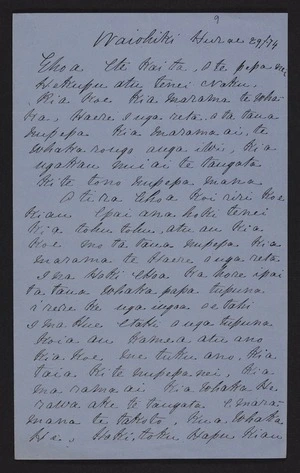 9
Waiohiki Hurae 29/74
Ehoa Ete Kaita, o te pepa
He Kupu atu tenei Naku,
Kia Koe Kia marama te whaka
Haere i nga reta, o ta taua
nupepa Kia marama ai, te
whaka rongo a nga iwi, Kia
ngakau nui ai te tangata
Ki te tono nupepa mana
Ehoa Koi riri Koe
Kiau Epai ana hoki tenei
Kia tohu tohu, atu au Kia
Koe mo ta taua nupepa Kia
marama te Haere o nga reta.
Ina Hoki Ehoa Kahore i pai
ta taua whaka papa tupuna
i rere ke nga ingoa o etahi
o nga tupuna
Koia au Ka mea atu ano
Kia Koe me tuku ano, Kia
taia Ki te nupepa nei, Kia
marama ai Kia whaka He
rawa ake te tangata E mara
mana te takoto, Kina whaka
He, Hoki, toku Hapu Kiau